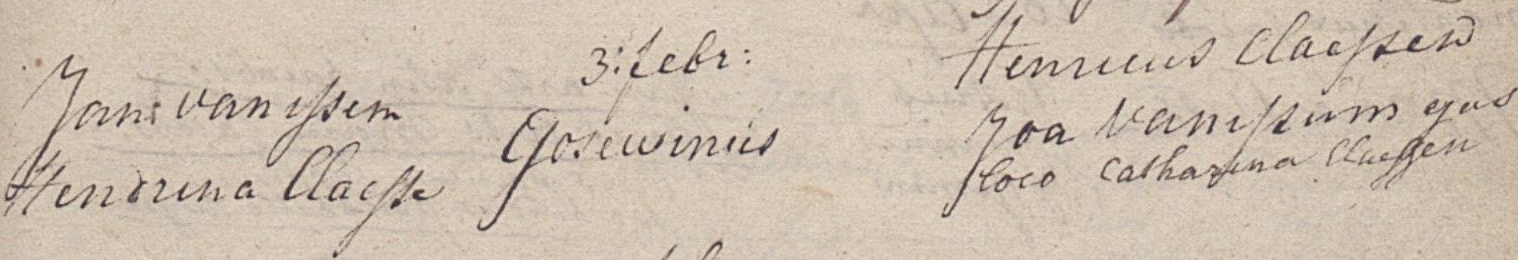 Jan: van issem
Hendrina Claesse
3: febr:
Gosewinus
Henricus Claessen
Joa Van issum ejus
loco Catharina Claessen